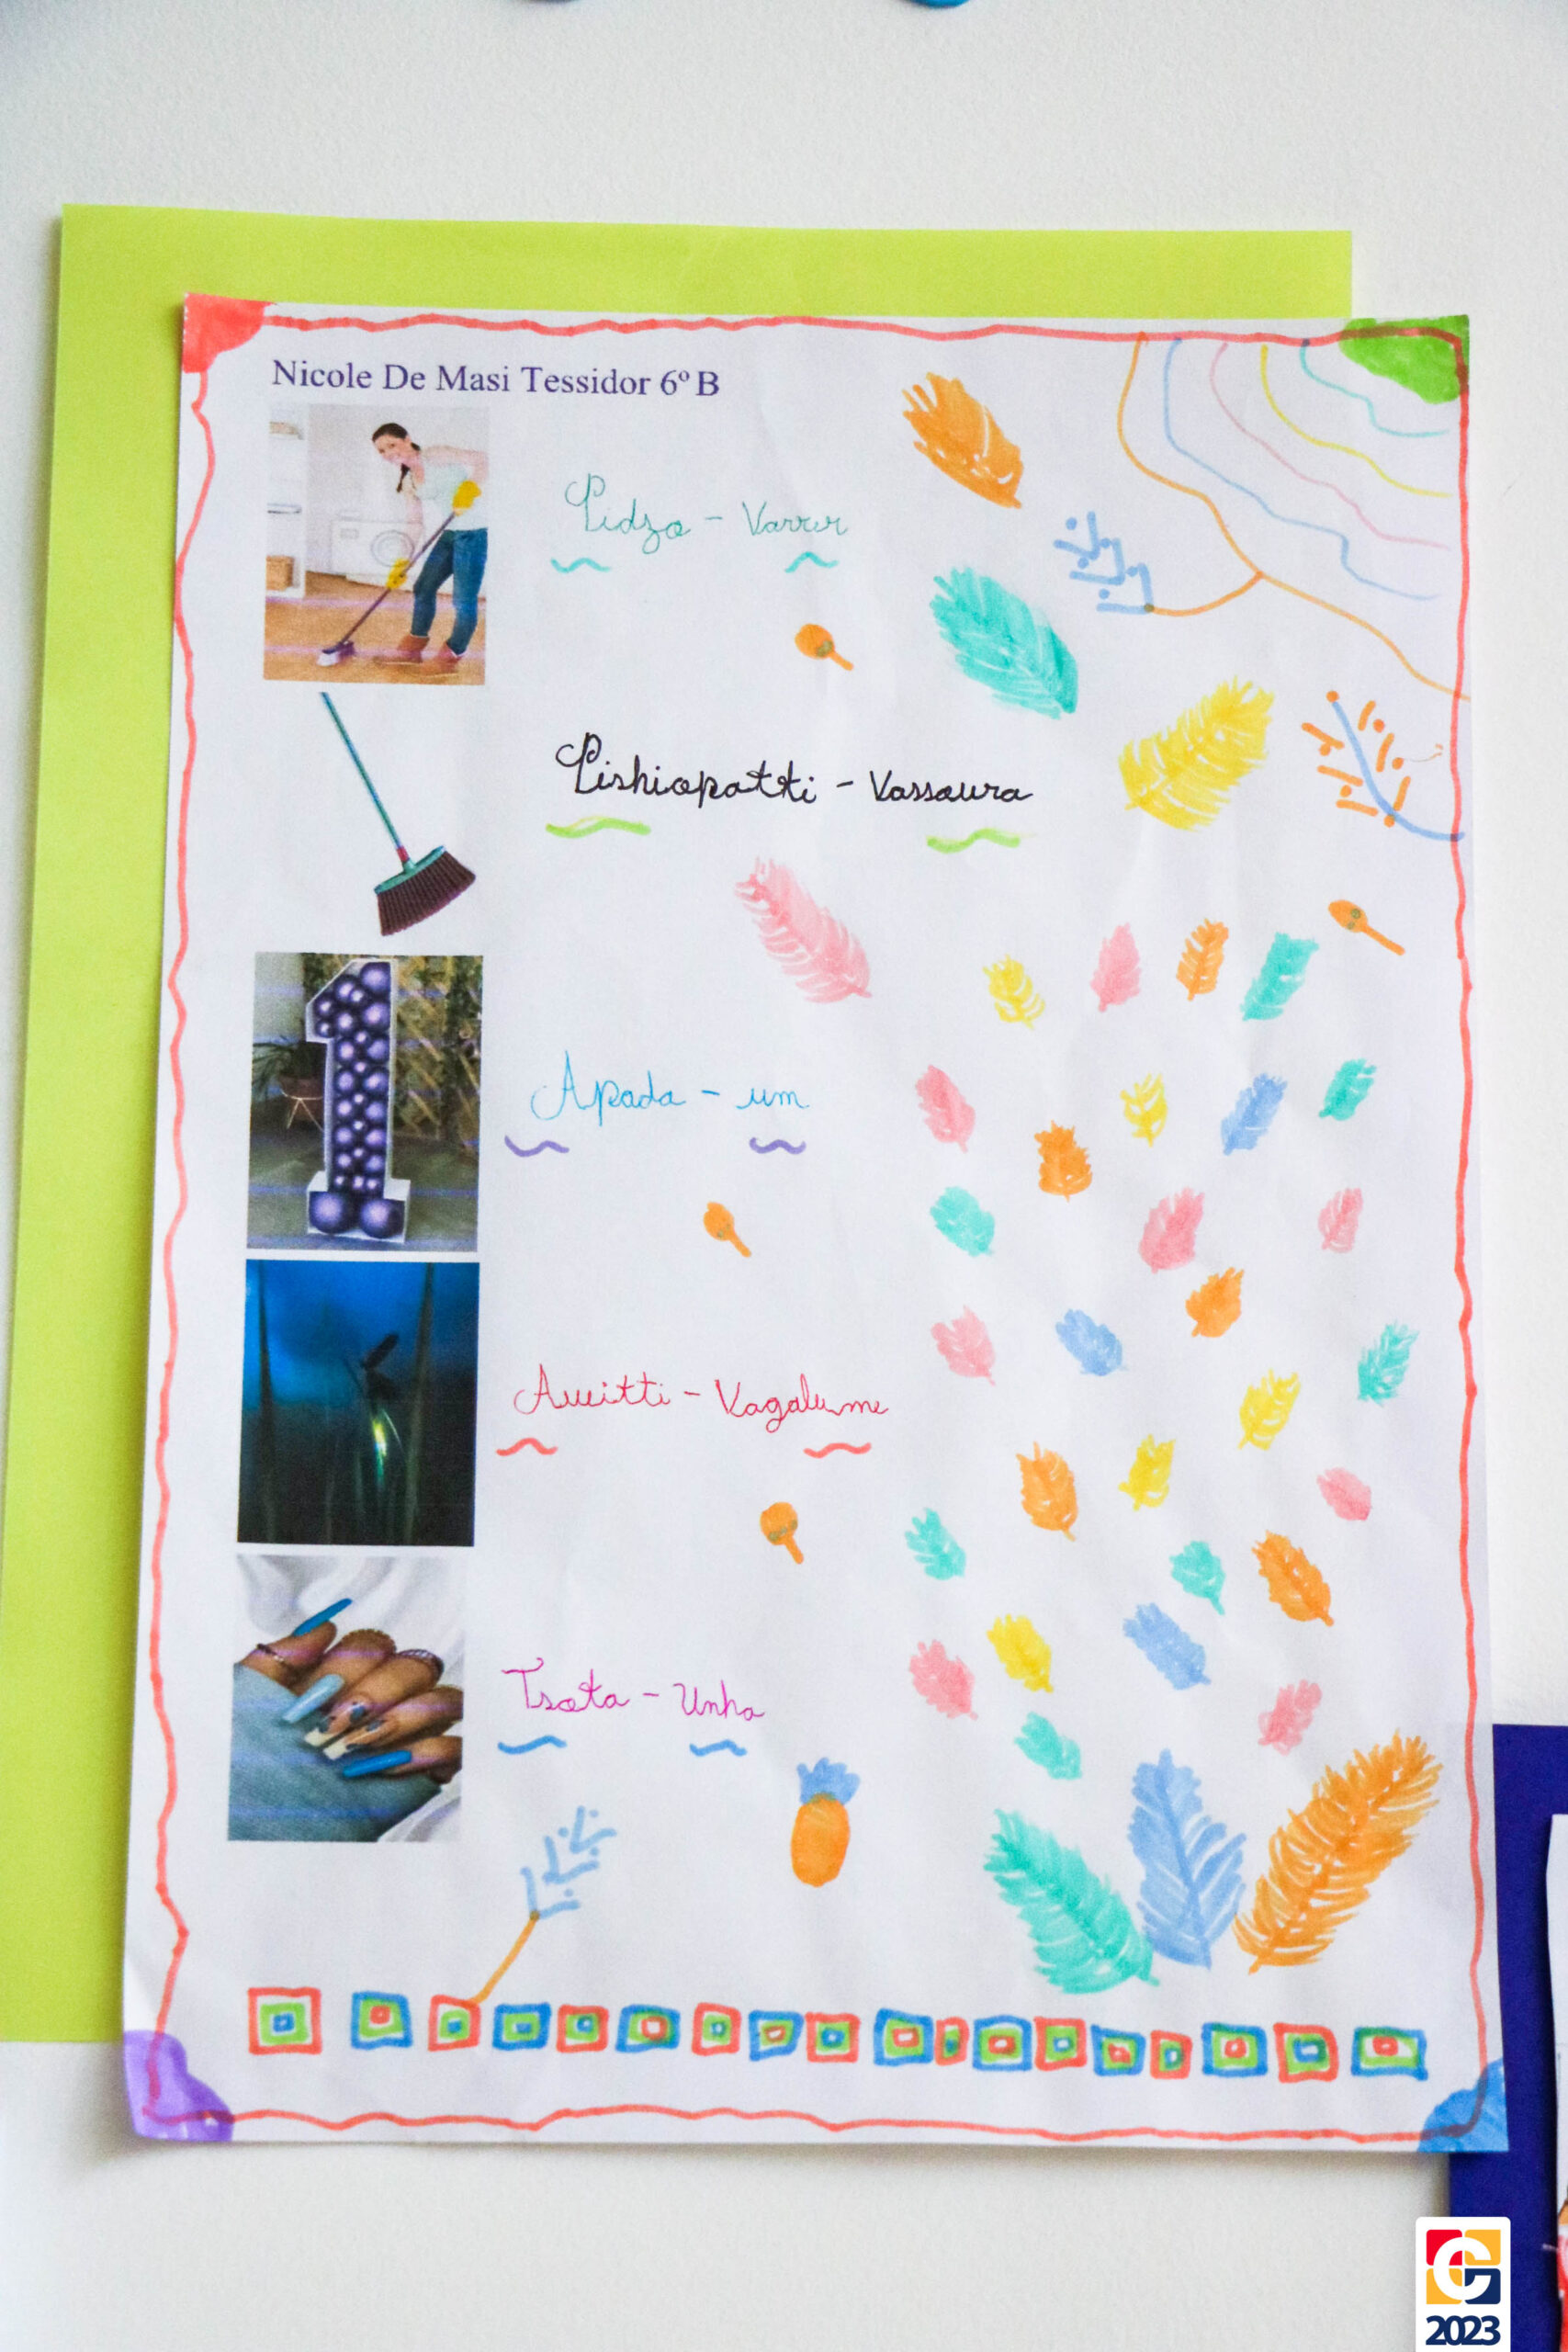 Nicole De Masi Tessidor 6º B
Pidza - Varrer
Pishiopatti - Vassoura
Apada - um
Aueitti - Vagalume
Tsota - Unha
2023